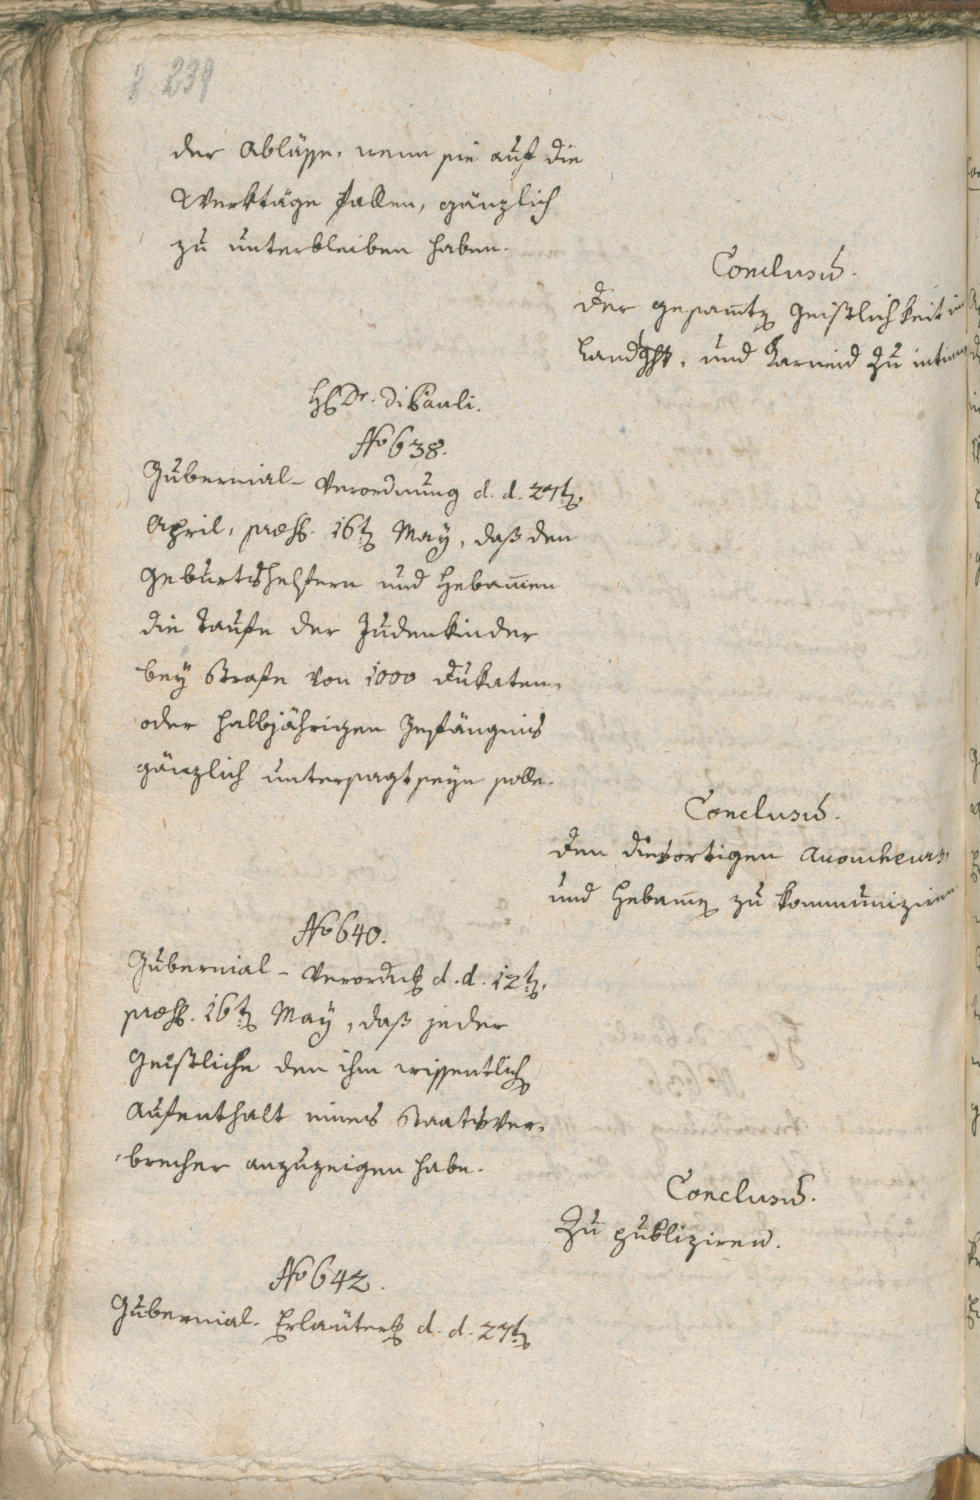 239
der Ablässe, wenn sie auf die
Werktäge fallen, gänzlich
zu unterbleiben haben.
Conclusū.
Der gesam̄ten Geistlichkeit
Landght, und Karneid zu
H Dr. Di Pauli.
No 638.
Gubernial-Verordnung d. d. 27ten
April, præs. 16ten May, daß den
Geburtshelfern und Hebam̄en
die Taufe der Judenkinder
bey Strafe von 1000 Dukaten,
oder halbjährigen Gefängnis
gänzlich untersagt seyn solle.
Conclusū.
Den diesortigen Accoucheurs,
und Hebam̄en zu kommuniziren
No 640.
Gubernial-Verordng d. d. 12ten,
præs. 16ten May, daß jeder
Geistliche den ihm wissentlichen
Aufenthalt eines Staatsver-
brecher anzuzeigen habe.
Conclusū.
Zu publiziren.
No 642.
Gubernial-Erläuterg d. d. 27ten